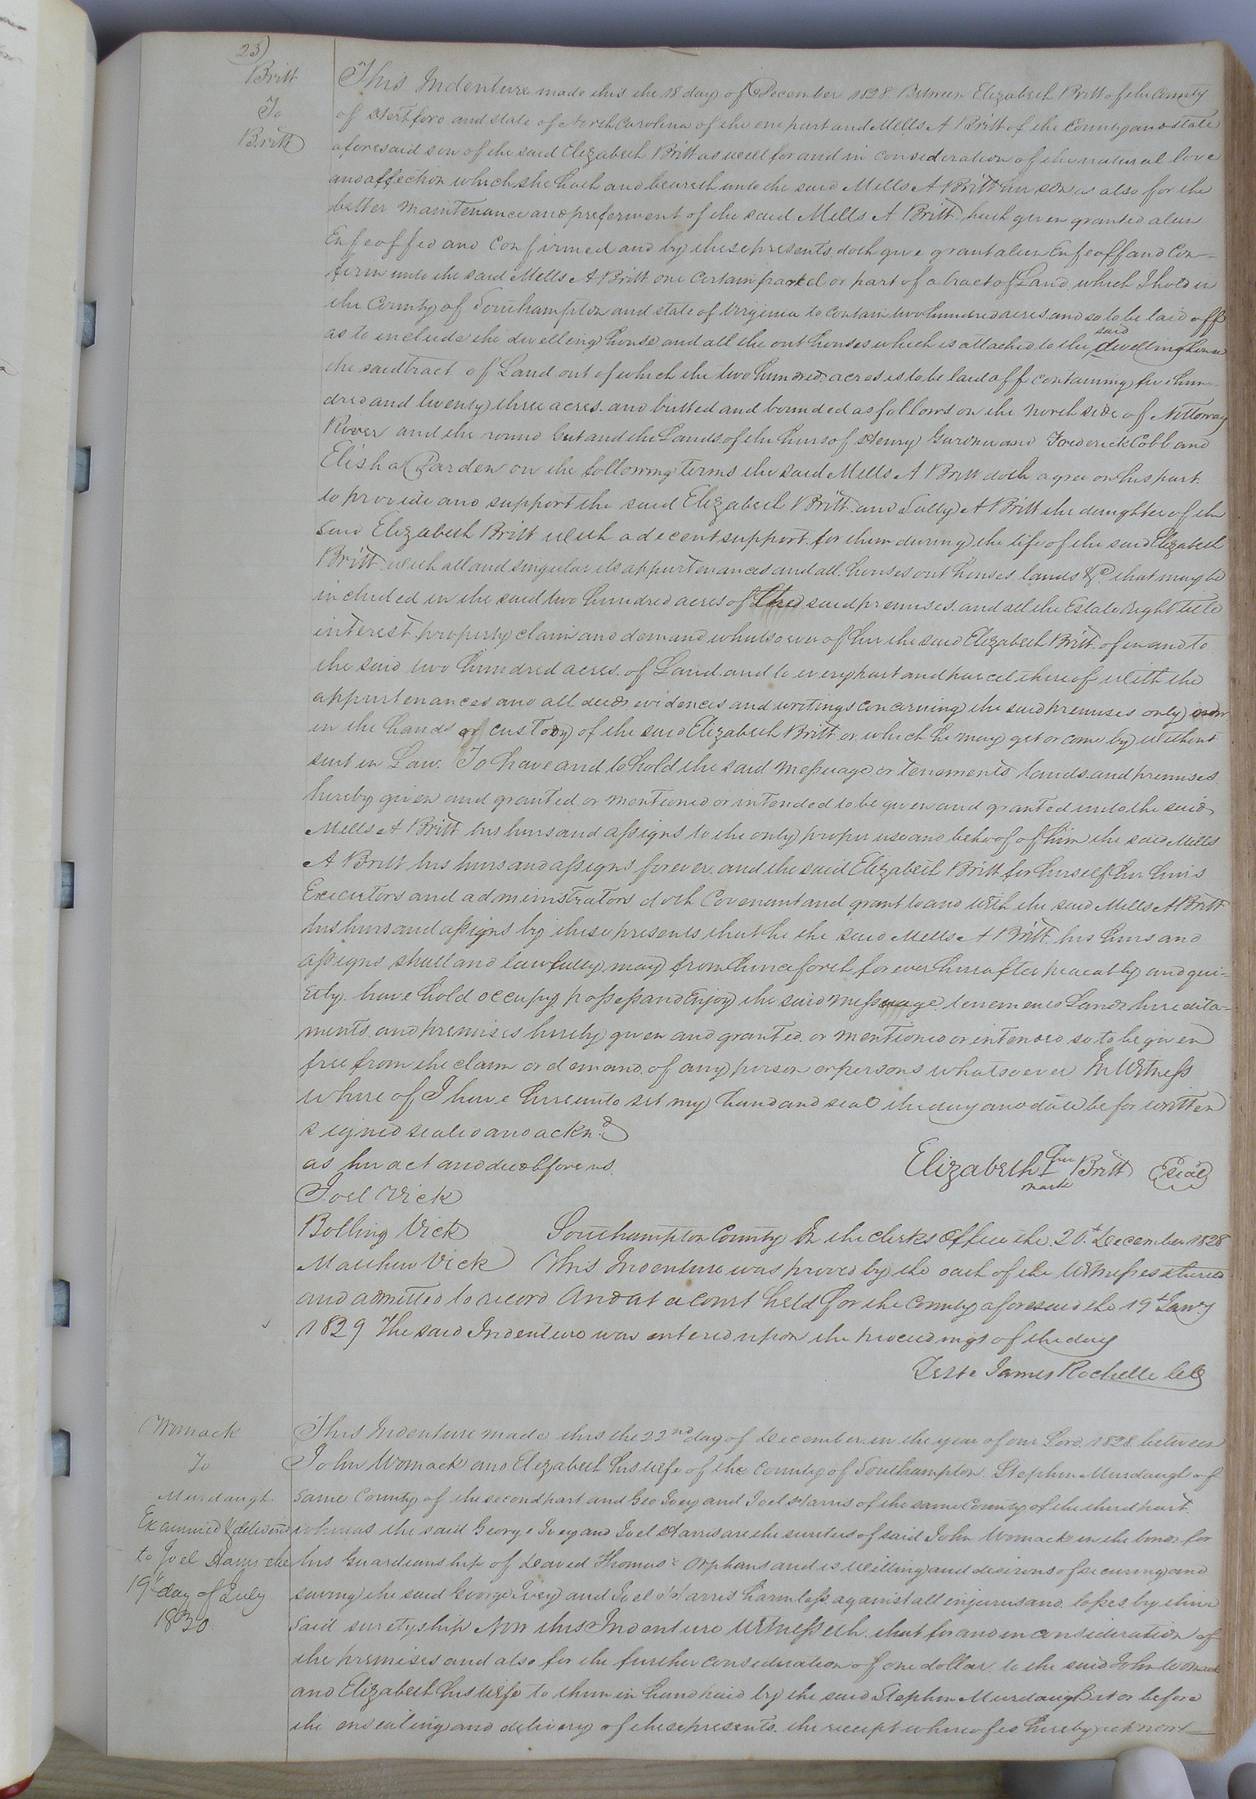 23)
Britt
To
Britt
This Indenture made this the 18 day of December 1828 Between Elizabeth Britt of the County
of Hertford and state of North Carolina of the one part and Mills A Britt of the County and state
aforesaid son of the said Elizabeth Britt as well for and in consideration of the natural love
and affection which she hath and beareth unto the said Mills A Britt her son as also for the
better maintenance and preferment of the said Mills A Britt hath given granted alien
Enfeoffed and Confirmed and by these presents doth give grant alien Enfeoff and Con-
firm unto the said Mills A Britt one certain parcel or part of a tract of Land which I hold in
the County of Southampton and state of Virginia to contain two hundred acres and so to be laid off
as to include the dwelling house and all the out houses which is attached to the said dwelling house
the said tract of Land out of which the two hundred acres is to be laid off containing five hun-
dred and twenty three acres. and butted and bounded as follows on the north side of Nottoway
River and the round Gut and the Lands of the heirs of Henry Gurdner and Frederick Cobb and
Elisha Darden on the following terms the said Mills A Britt doth agree on his part
to provide and support the said Elizabeth Britt and Sally A Britt the daughter of the
said Elizabeth Britt with a decent support for them during the life of the said Elizabeth
Britt with all and singular its appurtenances and all houses out houses lands &c that may be
included in the said two hundred acres of said premises. and all the Estate right title
interest property claim and demand whatsoever of her the said Elizabeth Britt of in and to
the said two hundred acres. of Land and to every part and parcel thereof with the
appurtenances and all deeds evidences and writings concerning the said premises only now
in the hands or custody of the said Elizabeth Britt or which he may get or come by without
suit in Law. To have and to hold the said messuage or tenements lands and premises
hereby given and granted or mentioned or intended to be given and granted unto the said
Mills A Britt his heirs and assigns to the only proper use and behoof of him the said Mills
A Britt his heirs and assigns forever. and the said Elizabeth Britt for herself her heirs
Executors and administrators doth Covenant and grant to and with the said Mills A Britt
his heirs and assigns by these presents that he the said Mills A Britt his heirs and
assigns shall and lawfully may from henceforth forever hereafter peaceably and qui-
etly. have hold occupy possess and Enjoy the said messuage tenements Lands heredita-
ments. and premises hereby given and granted. or mentioned or intended so to be given
free from the claim or demand of any person or persons whatsoever In Witness
whereof I have hereunto set my hand and seal the day and date before written
signed sealed and acknd
as her act and deed before us.
Elizabeth her mark Britt Seal
Joel Vick
Bolling Vick Southampton County In the clerks Office the 20th December 1828
Matthew Vick This Indenture was proved by the oath of the Witnesses thereto
and admitted to record And at a court held for the county aforesaid the 19th Jany
1829 The said Indenture was entered upon the proceedings of the day
Teste James Rochelle Clk
Womack
To
Murdaugh
Examined & delivered
to Joel Harris the
19th day of July
1830
This Indenture made this the 22nd day of December in the year of our Lord 1828 between
John Womack and Elizabeth his wife of the County of Southampton Stephen Murdaugh of
same County of the second part and Geo Ivey and Joel Harris of the same County of the third part.
whereas the said George Ivey and Joel Harris are the sureties of said John Womack in the bond for
his Guardianship of David Thomas's Orphans and is willing and desirous of securing and
saving the said George Ivey and Joel Harris harmless against all injuries and losses by their
said suretyship Now this Indenture Witnesseth that for and in consideration of
the premises and also for the further consideration of one dollar to the said John Womack
and Elizabeth his wife to them in hand paid by the said Stephen Murdaugh at or before
the ensealing and delivery of these presents. the receipt whereof is hereby acknow-